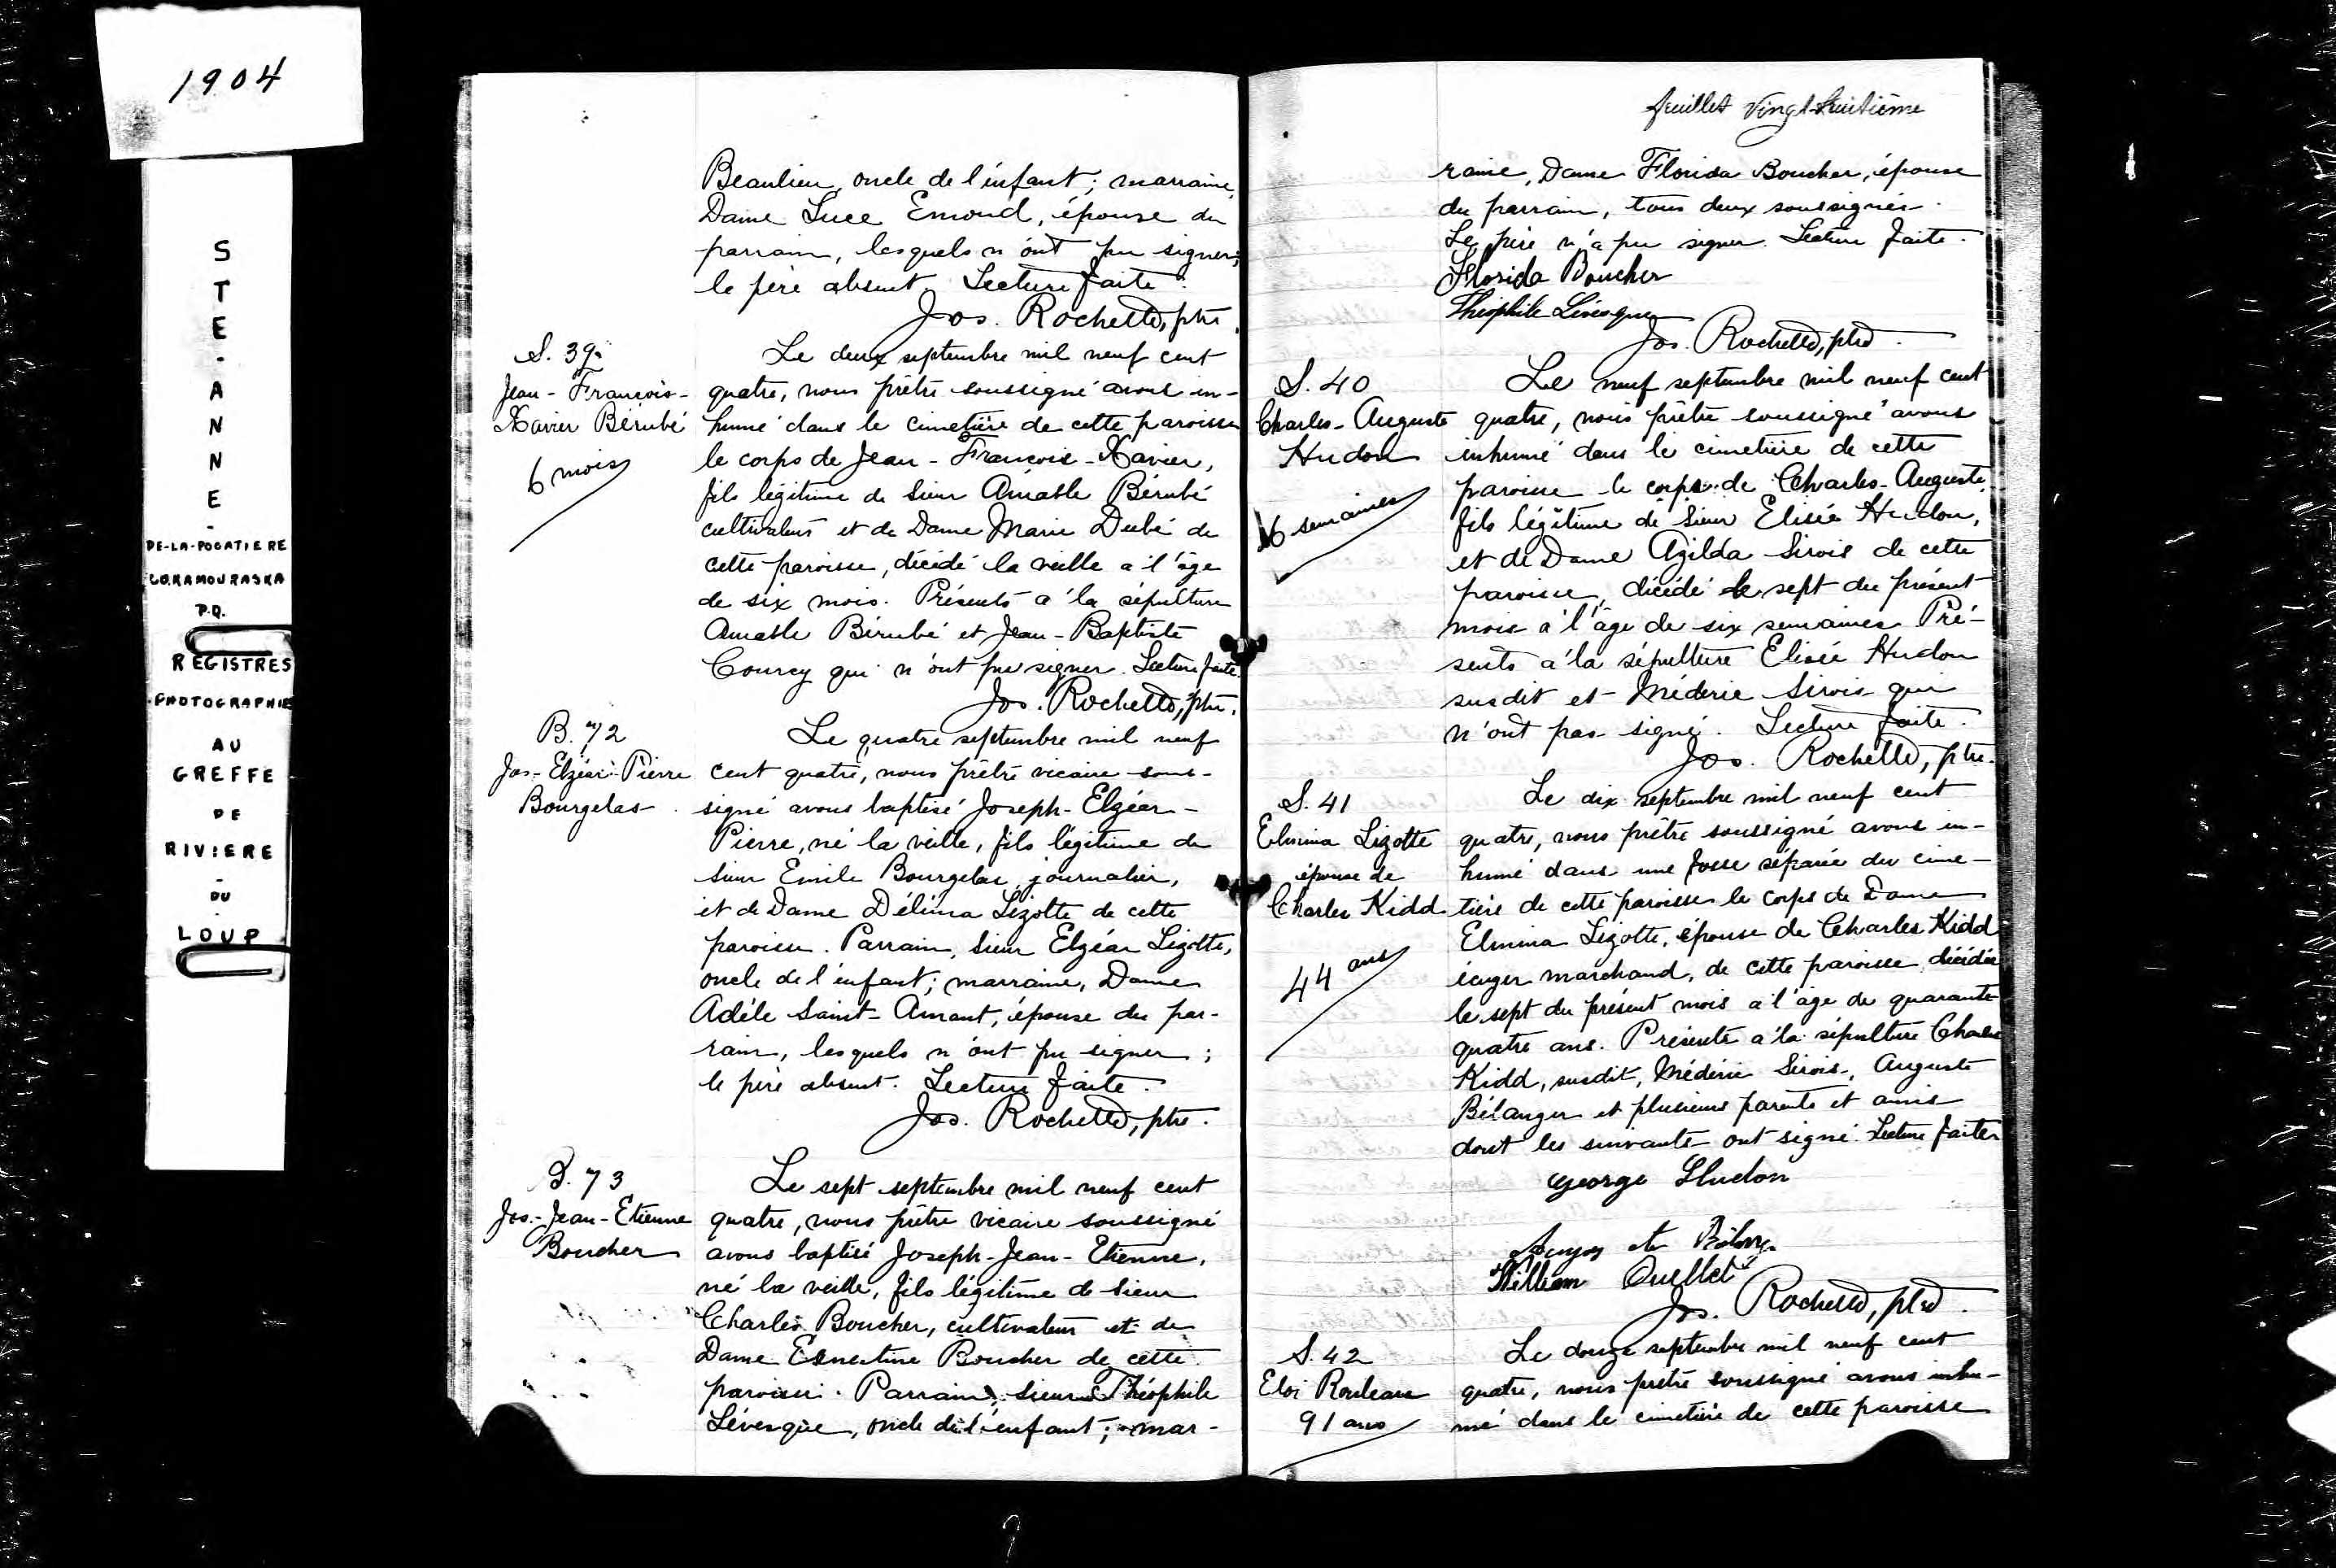 1904
S
T
E
-
A
N
N
E
-
DE-LA-POCATIERE
CO. KAMOURASKA
P.Q.
REGISTRES
PHOTOGRAPHIE
AU
GREFFE
DE
RIVIERE
-
DU
-
LOUP
Beaulieu, oncle de l'enfant; marraine,
Dame Luce Emond, épouse du
parrain, lesquels n'ont pu signer;
le père absent. Lecture faite.
Jos. Rochette, ptre.
S. 39.
Jean-François-
Xavier Bérubé
6 mois
Le deux septembre mil neuf cent
quatre, nous prêtre soussigné avons in-
humé dans le cimetière de cette paroisse
le corps de Jean-François-Xavier,
fils légitime de Sieur Amable Bérubé
cultivateur et de Dame Marie Dubé de
cette paroisse, décédé la veille a l'âge
de six mois. Présents a la sépulture
Amable Bérubé et Jean-Baptiste
Courcy qui n'ont pu signer. Lecture faite.
Jos. Rochette, ptre.
B. 72
Jos-Elzéar-Pierre
Bourgelas
Le quatre septembre mil neuf
cent quatre, nous prêtre vicaire sous-
signé avons baptisé Joseph-Elzéar-
Pierre, né la veille, fils légitime de
sieur Emile Bourgelas, journalier,
et de Dame Délima Lizotte de cette
paroisse. Parrain, Sieur Elzéar Lizotte,
oncle de l'enfant; marraine, Dame
Adèle Saint-Amant, épouse du par-
rain, lesquels n'ont pu signer;
le père absent. Lecture faite.
Jos. Rochette, ptre.
B. 73
Jos.-Jean-Etienne
Boucher
Le sept septembre mil neuf cent
quatre, nous prêtre vicaire soussigné
avons baptisé Joseph-Jean-Etienne,
né la veille, fils légitime de sieur
Charles Boucher, cultivateur et de
Dame Ernestine Boucher de cette
paroisse. Parrain, Sieur Théophile
Lévesque, oncle de l'enfant; mar-
feuillet vingt-huitième
raine, Dame Florida Boucher, épouse
du parrain, tous deux soussignés.
Le père n'a pu signer. Lecture faite.
Florida Boucher
Théophile Lévesque
Jos. Rochette, ptre.
S. 40
Charles-Auguste
Hudon
6 semaines
Le neuf septembre mil neuf cent
quatre, nous prêtre soussigné avons
inhumé dans le cimetière de cette
paroisse le corps de Charles-Auguste,
fils légitime de Sieur Elisée Hudon,
et de Dame Azilda Sirois de cette
paroisse, décédé le sept du présent
mois a l'âge de six semaines Pré-
sents a la sépulture Elisée Hudon
susdit et Méderic Sirois qui
n'ont pas signé. Lecture faite.
Jos. Rochette, ptre.
S. 41
Elmina Lizotte
épouse de
Charles Kidd
44 ans
Le dix septembre mil neuf cent
quatre, nous prêtre soussigné avons in-
humé dans une fosse séparée du cime-
tière de cette paroisse le corps de Dame
Elmina Lizotte, épouse de Charles Kidd
écuyer marchand, de cette paroisse, décédée
le sept du présent mois a l'âge de quarante
quatre ans. Présents a la sépulture Charles
Kidd, susdit, Médéric Sirois, Auguste
Bélanger et plusieurs parents et amis
dont les suivants ont signé. Lecture faite.
George Hudon
William Ouellet
Jos. Rochette, ptre.
S. 42
Eloi Rouleau
91 ans
Le douze septembre mil neuf cent
quatre, nous prêtre soussigné avons inhu-
mé dans le cimetière de cette paroisse